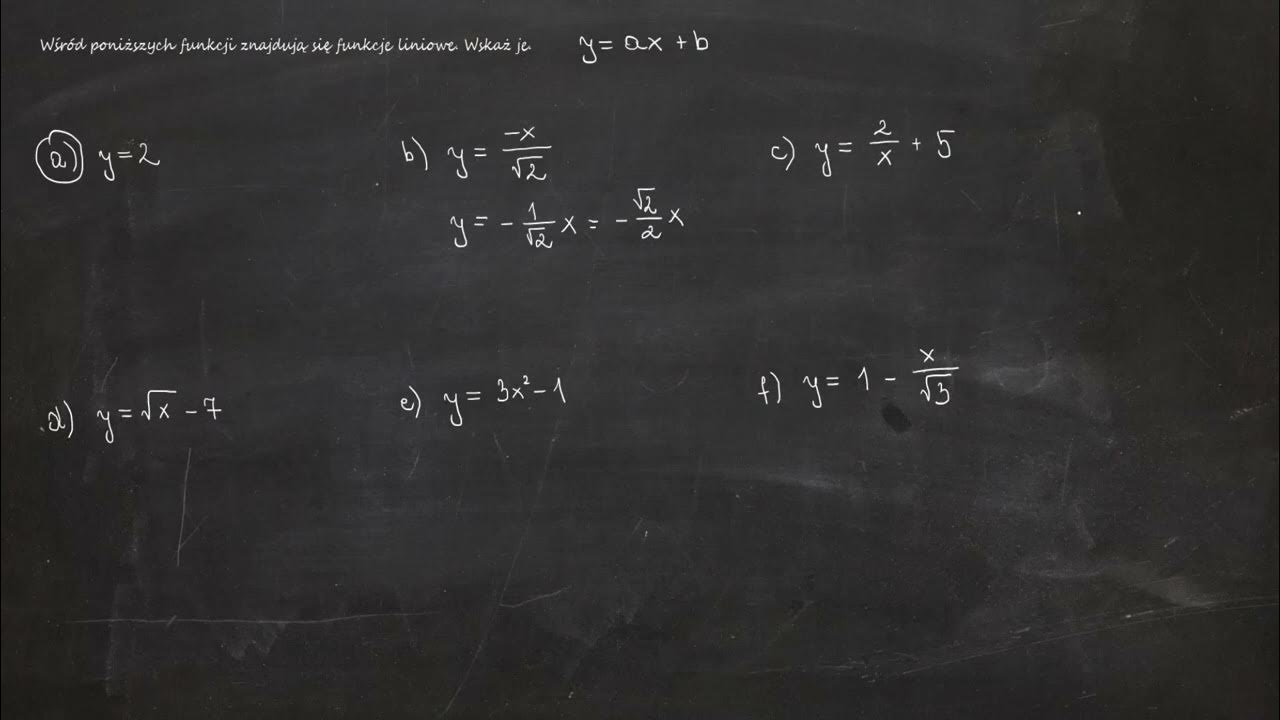 Wśród poniższych funkcji znajdują się funkcje liniowe. Wskaż je. y = ax + b
a) y = 2
b) y = -x/√2
y = - 1/√2 x = - √2/2 x
c) y = 2/x + 5
d) y = √x - 7
e) y = 3x² - 1
f) y = 1 - x/√3